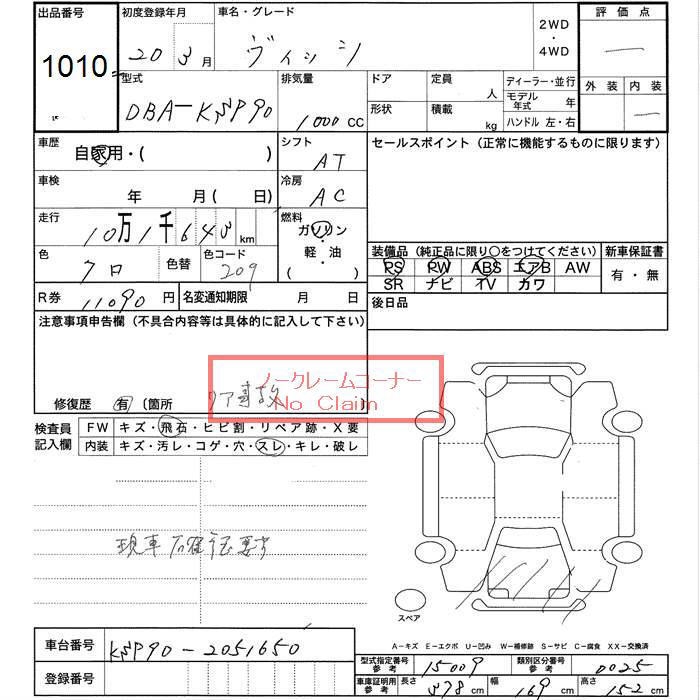 出品番号 初度登録年月 車名・グレード 2WD・4WD 評価点
1010 20 3月 ヴィッツ
外装 内装
型式 排気量 ドア 定員 人 ディーラー・並行
DBA-KSP90 1000 CC 形状 積載 kg モデル年式 年
ハンドル 左・右
車歴 自家用・( ) シフト AT セールスポイント(正常に機能するものに限ります)
車検 年 月(日) 冷房 AC
走行 10万1千643km 燃料 ガソリン・軽油( )
色 クロ 色替 色コード 209
装備品(純正品に限り○をつけてください) 新車保証書
PS PW ABS エアB AW 有・無
SR ナビ TV カワ
R券 11090円 名変通知期限 月 日 後日品
注意事項申告欄(不具合内容等は具体的に記入して下さい)
ノークレームコーナー
No Claim
修復歴 有 〔箇所 リア事故
検査員記入欄 FW キズ・飛石・ヒビ割・リペア跡・X要
内装 キズ・汚レ・コゲ・穴・スレ・キレ・破レ
現車確認要す
スペア
A-キズ E-エクボ U-凹み W-補修跡 S-サビ C-腐食 XX-交換済
車台番号 KSP90-2051650
型式指定番号 参考 15009 類別区分番号 参考 0025
登録番号
車庫証明用 参考 長さ 378cm 幅 169 高さ 152cm